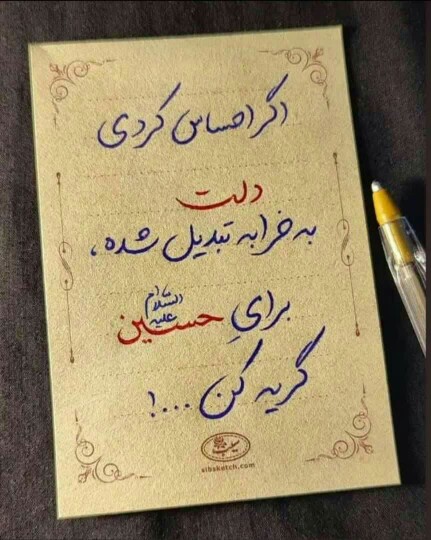 اگر احساس کردی
دلت
به خرابه تبدیل شده،
برای حسین علیه السلام
گریه کن ...!
sibsketch.com